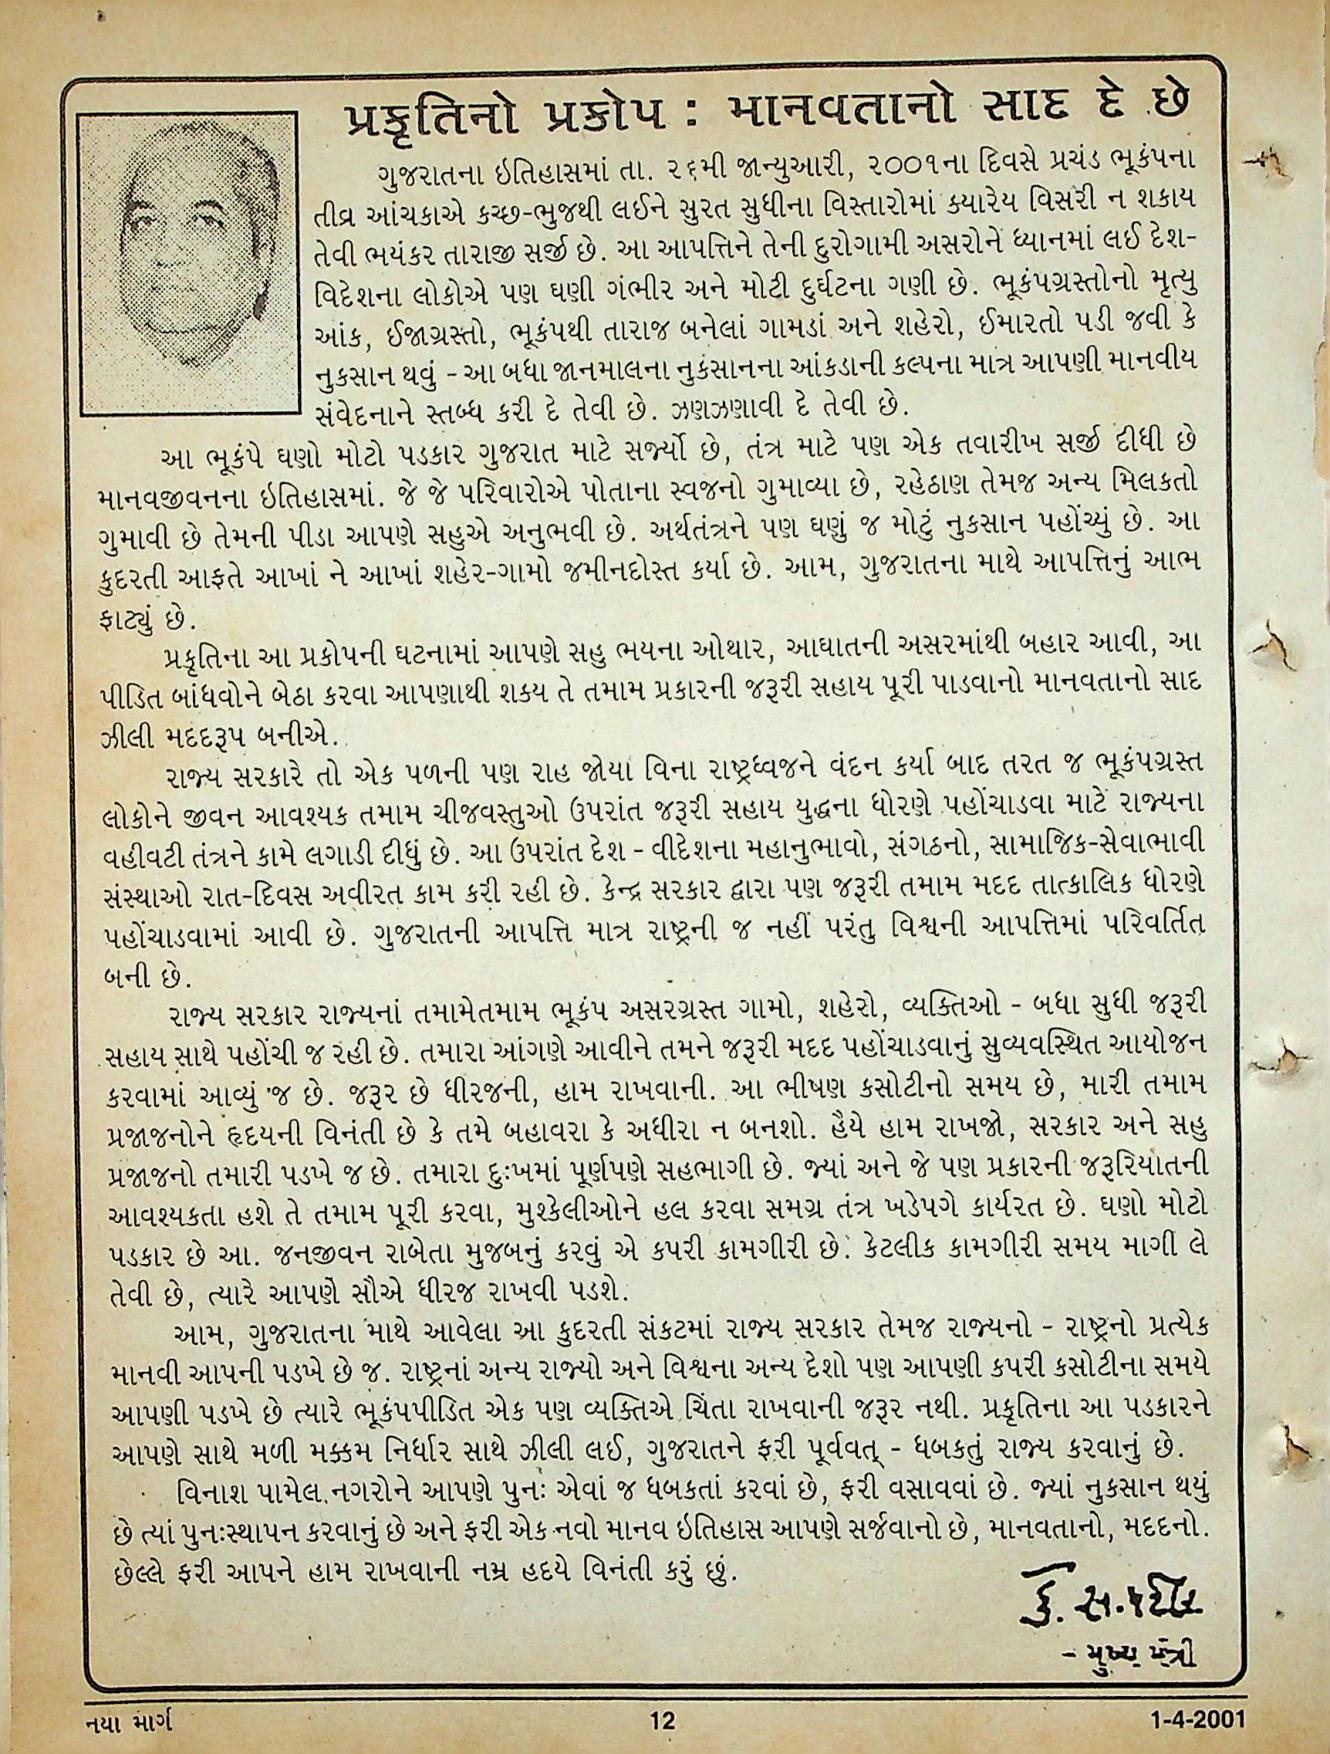 પ્રકૃતિનો પ્રકોપ : માનવતાનો સાદ દે છે
ગુજરાતના ઇતિહાસમાં તા. ૨૬મી જાન્યુઆરી, ૨૦૦૧ના દિવસે પ્રચંડ ભૂકંપના
તીવ્ર આંચકાએ કચ્છ-ભુજથી લઈને સુરત સુધીના વિસ્તારોમાં ક્યારેય વિસરી ન શકાય
તેવી ભયંકર તારાજી સર્જી છે. આ આપત્તિને તેની દુરોગામી અસરોને ધ્યાનમાં લઈ દેશ-
વિદેશના લોકોએ પણ ઘણી ગંભીર અને મોટી દુર્ઘટના ગણી છે. ભૂકંપગ્રસ્તોનો મૃત્યુ
આંક, ઈજાગ્રસ્તો, ભૂકંપથી તારાજ બનેલાં ગામડાં અને શહેરો, ઈમારતો પડી જવી કે
નુકસાન થવું - આ બધા જાનમાલના નુકસાનના આંકડાની કલ્પના માત્ર આપણી માનવીય
સંવેદનાને સ્તબ્ધ કરી દે તેવી છે. ઝણઝણાવી દે તેવી છે.
આ ભૂકંપે ઘણો મોટો પડકાર ગુજરાત માટે સર્જ્યો છે, તંત્ર માટે પણ એક તવારીખ સર્જી દીધી છે
માનવજીવનના ઇતિહાસમાં. જે જે પરિવારોએ પોતાના સ્વજનો ગુમાવ્યા છે, રહેઠાણ તેમજ અન્ય મિલકતો
ગુમાવી છે તેમની પીડા આપણે સહુએ અનુભવી છે. અર્થતંત્રને પણ ઘણું જ મોટું નુકસાન પહોંચ્યું છે. આ
કુદરતી આફતે આખાં ને આખાં શહેર-ગામો જમીનદોસ્ત કર્યા છે. આમ, ગુજરાતના માથે આપત્તિનું આભ
ફાટ્યું છે.
પ્રકૃતિના આ પ્રકોપની ઘટનામાં આપણે સહુ ભયના ઓથાર, આઘાતની અસરમાંથી બહાર આવી, આ
પીડિત બાંધવોને બેઠા કરવા આપણાથી શક્ય તે તમામ પ્રકારની જરૂરી સહાય પૂરી પાડવાનો માનવતાનો સાદ
ઝીલી મદદરૂપ બનીએ.
રાજ્ય સરકારે તો એક પળની પણ રાહ જોયા વિના રાષ્ટ્રધ્વજને વંદન કર્યા બાદ તરત જ ભૂકંપગ્રસ્ત
લોકોને જીવન આવશ્યક તમામ ચીજવસ્તુઓ ઉપરાંત જરૂરી સહાય યુદ્ધના ધોરણે પહોંચાડવા માટે રાજ્યના
વહીવટી તંત્રને કામે લગાડી દીધું છે. આ ઉપરાંત દેશ - વીદેશના મહાનુભાવો, સંગઠનો, સામાજિક-સેવાભાવી
સંસ્થાઓ રાત-દિવસ અવીરત કામ કરી રહી છે. કેન્દ્ર સરકાર દ્વારા પણ જરૂરી તમામ મદદ તાત્કાલિક ધોરણે
પહોંચાડવામાં આવી છે. ગુજરાતની આપત્તિ માત્ર રાષ્ટ્રની જ નહીં પરંતુ વિશ્વની આપત્તિમાં પરિવર્તિત
બની છે.
રાજ્ય સરકાર રાજ્યનાં તમામેતમામ ભૂકંપ અસરગ્રસ્ત ગામો, શહેરો, વ્યક્તિઓ - બધા સુધી જરૂરી
સહાય સાથે પહોંચી જ રહી છે. તમારા આંગણે આવીને તમને જરૂરી મદદ પહોંચાડવાનું સુવ્યવસ્થિત આયોજન
કરવામાં આવ્યું જ છે. જરૂર છે ધીરજની, હામ રાખવાની. આ ભીષણ કસોટીનો સમય છે, મારી તમામ
પ્રજાજનોને હૃદયની વિનંતી છે કે તમે બહાવરા કે અધીરા ન બનશો. હૈયે હામ રાખજો, સરકાર અને સહુ
પ્રજાજનો તમારી પડખે જ છે. તમારા દુઃખમાં પૂર્ણપણે સહભાગી છે. જ્યાં અને જે પણ પ્રકારની જરૂરિયાતની
આવશ્યકતા હશે તે તમામ પૂરી કરવા, મુશ્કેલીઓને હલ કરવા સમગ્ર તંત્ર ખડેપગે કાર્યરત છે. ઘણો મોટો
પડકાર છે આ. જનજીવન રાબેતા મુજબનું કરવું એ કપરી કામગીરી છે. કેટલીક કામગીરી સમય માગી લે
તેવી છે, ત્યારે આપણે સૌએ ધીરજ રાખવી પડશે.
આમ, ગુજરાતના માથે આવેલા આ કુદરતી સંકટમાં રાજ્ય સરકાર તેમજ રાજ્યનો - રાષ્ટ્રનો પ્રત્યેક
માનવી આપની પડખે છે જ. રાષ્ટ્રનાં અન્ય રાજ્યો અને વિશ્વના અન્ય દેશો પણ આપણી કપરી કસોટીના સમયે
આપણી પડખે છે ત્યારે ભૂકંપપીડિત એક પણ વ્યક્તિએ ચિંતા રાખવાની જરૂર નથી. પ્રકૃતિના આ પડકારને
આપણે સાથે મળી મક્કમ નિર્ધાર સાથે ઝીલી લઈ, ગુજરાતને ફરી પૂર્વવત્ - ધબકતું રાજ્ય કરવાનું છે.
વિનાશ પામેલ નગરોને આપણે પુનઃ એવાં જ ધબકતાં કરવાં છે, ફરી વસાવવાં છે. જ્યાં નુકસાન થયું
છે ત્યાં પુનઃસ્થાપન કરવાનું છે અને ફરી એક નવો માનવ ઇતિહાસ આપણે સર્જવાનો છે, માનવતાનો, મદદનો.
છેલ્લે ફરી આપને હામ રાખવાની નમ્ર હૃદયે વિનંતી કરું છું.
કે. સ. પટેલ
- મુખ્ય મંત્રી
નયા માર્ગ
12
1-4-2001